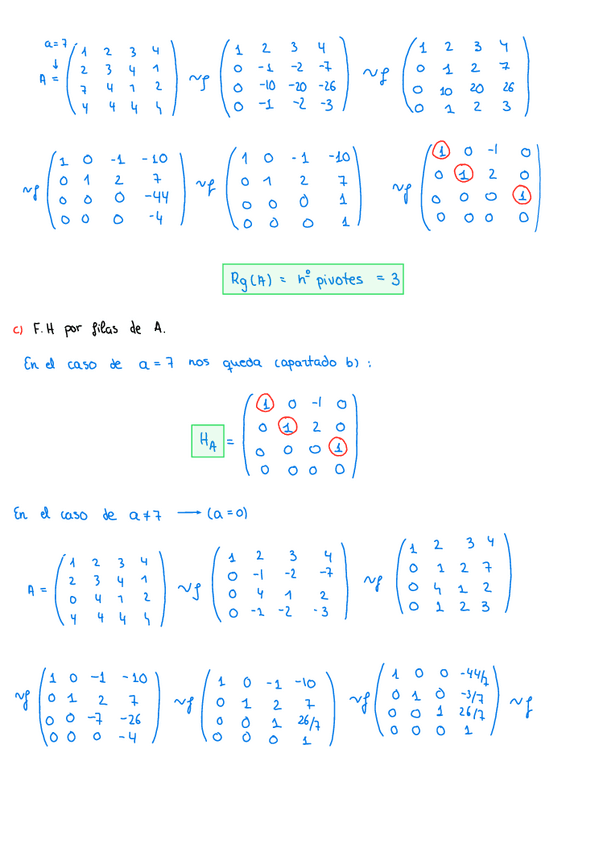 a=7
A = ( 1 2 3 4 ; 2 3 4 1 ; 7 4 1 2 ; 4 4 4 4 ) ~f ( 1 2 3 4 ; 0 -1 -2 -7 ; 0 -10 -20 -26 ; 0 -1 -2 -3 ) ~f ( 1 2 3 4 ; 0 1 2 7 ; 0 10 20 26 ; 0 1 2 3 )
~f ( 1 0 -1 -10 ; 0 1 2 7 ; 0 0 0 -44 ; 0 0 0 -4 ) ~f ( 1 0 -1 -10 ; 0 1 2 7 ; 0 0 0 1 ; 0 0 0 1 ) ~f ( 1 0 -1 0 ; 0 1 2 0 ; 0 0 0 1 ; 0 0 0 0 )
Rg(A) = nº pivotes = 3
c) F.H por filas de A.
En el caso de a=7 nos queda (apartado b) :
H_A = ( 1 0 -1 0 ; 0 1 2 0 ; 0 0 0 1 ; 0 0 0 0 )
En el caso de a≠7 ⟶ (a=0)
A = ( 1 2 3 4 ; 2 3 4 1 ; 0 4 1 2 ; 4 4 4 4 ) ~f ( 1 2 3 4 ; 0 -1 -2 -7 ; 0 4 1 2 ; 0 -1 -2 -3 ) ~f ( 1 2 3 4 ; 0 1 2 7 ; 0 4 1 2 ; 0 1 2 3 )
~f ( 1 0 -1 -10 ; 0 1 2 7 ; 0 0 -7 -26 ; 0 0 0 -4 ) ~f ( 1 0 -1 -10 ; 0 1 2 7 ; 0 0 1 26/7 ; 0 0 0 1 ) ~f ( 1 0 0 -44/7 ; 0 1 0 -3/7 ; 0 0 1 26/7 ; 0 0 0 1 ) ~f